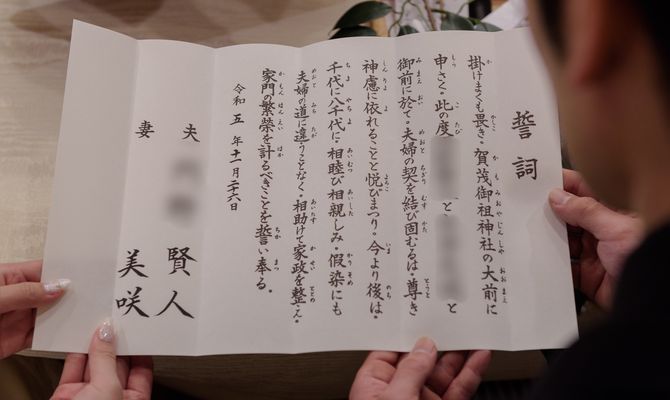 誓詞
掛けまくも畏き。賀茂御祖神社の大前に
申さく。此の度 と と
御前に於て。夫婦の契を結び固むるは。尊き
神慮に依れることと悦びまつり。今より後は。
千代に八千代に。相睦び相親しみ。假染にも
夫婦の道に違うことなく。相助けて家政を整え。
家門の繁榮を計るべきことを誓い奉る。
令和五年十一月二十六日
夫 賢人
妻 美咲